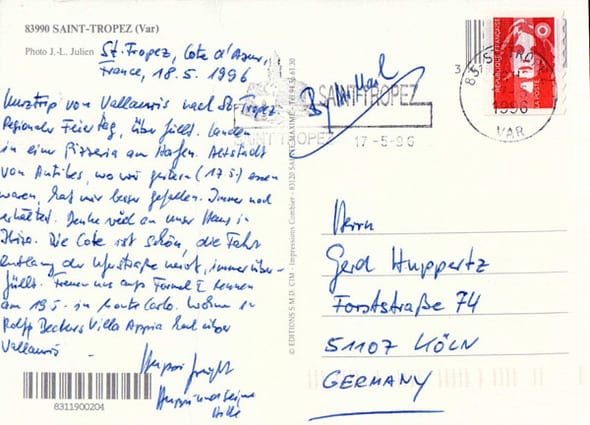 83990 SAINT-TROPEZ (Var)
Photo J.-L. Julien
St. Tropez, Cote d'Azur,
France, 18.5.1996
Kurztrip von Vallauris nach St-Tropez
Regionaler Feiertag, überfüllt. Landen
in einer Pizzeria am Hafen. Altstadt
von Antibes, wo wir gestern (17.5.) essen
waren, hat mir besser gefallen. Immer noch
erkältet. Denke viel an unser Haus in
Ibiza. Die Cote ist schön, die Fahrt
entlang der immer über-
füllt. Freuen uns aufs Formel I Rennen
am 19.5. in Monte Carlo. Wohnen in
Rolf Beckers Villa Appia hoch über
Vallauris
8311900204
© EDITIONS S.M.D. CIM - Impressions Combier - 83120 SAINTE-MAXIME - Tél 94.96.61.30
By Air Mail
SAINT-TROPEZ
SAINT TROPEZ
17-5-96
REPUBLIQUE FRANÇAISE
1996
VAR
Herrn
Gerd Huppertz
Forststraße 74
51107 KÖLN
GERMANY